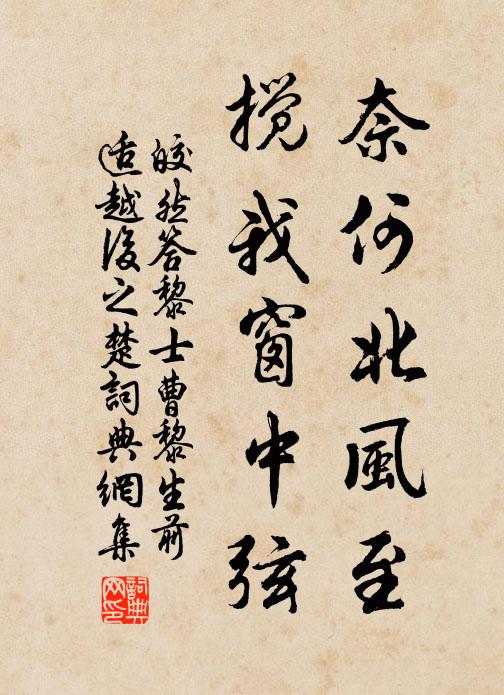 奈何北風至
攪我窗中弦
皎然答黎士曹黎生前
适越後之楚詞典網集
詞典網印